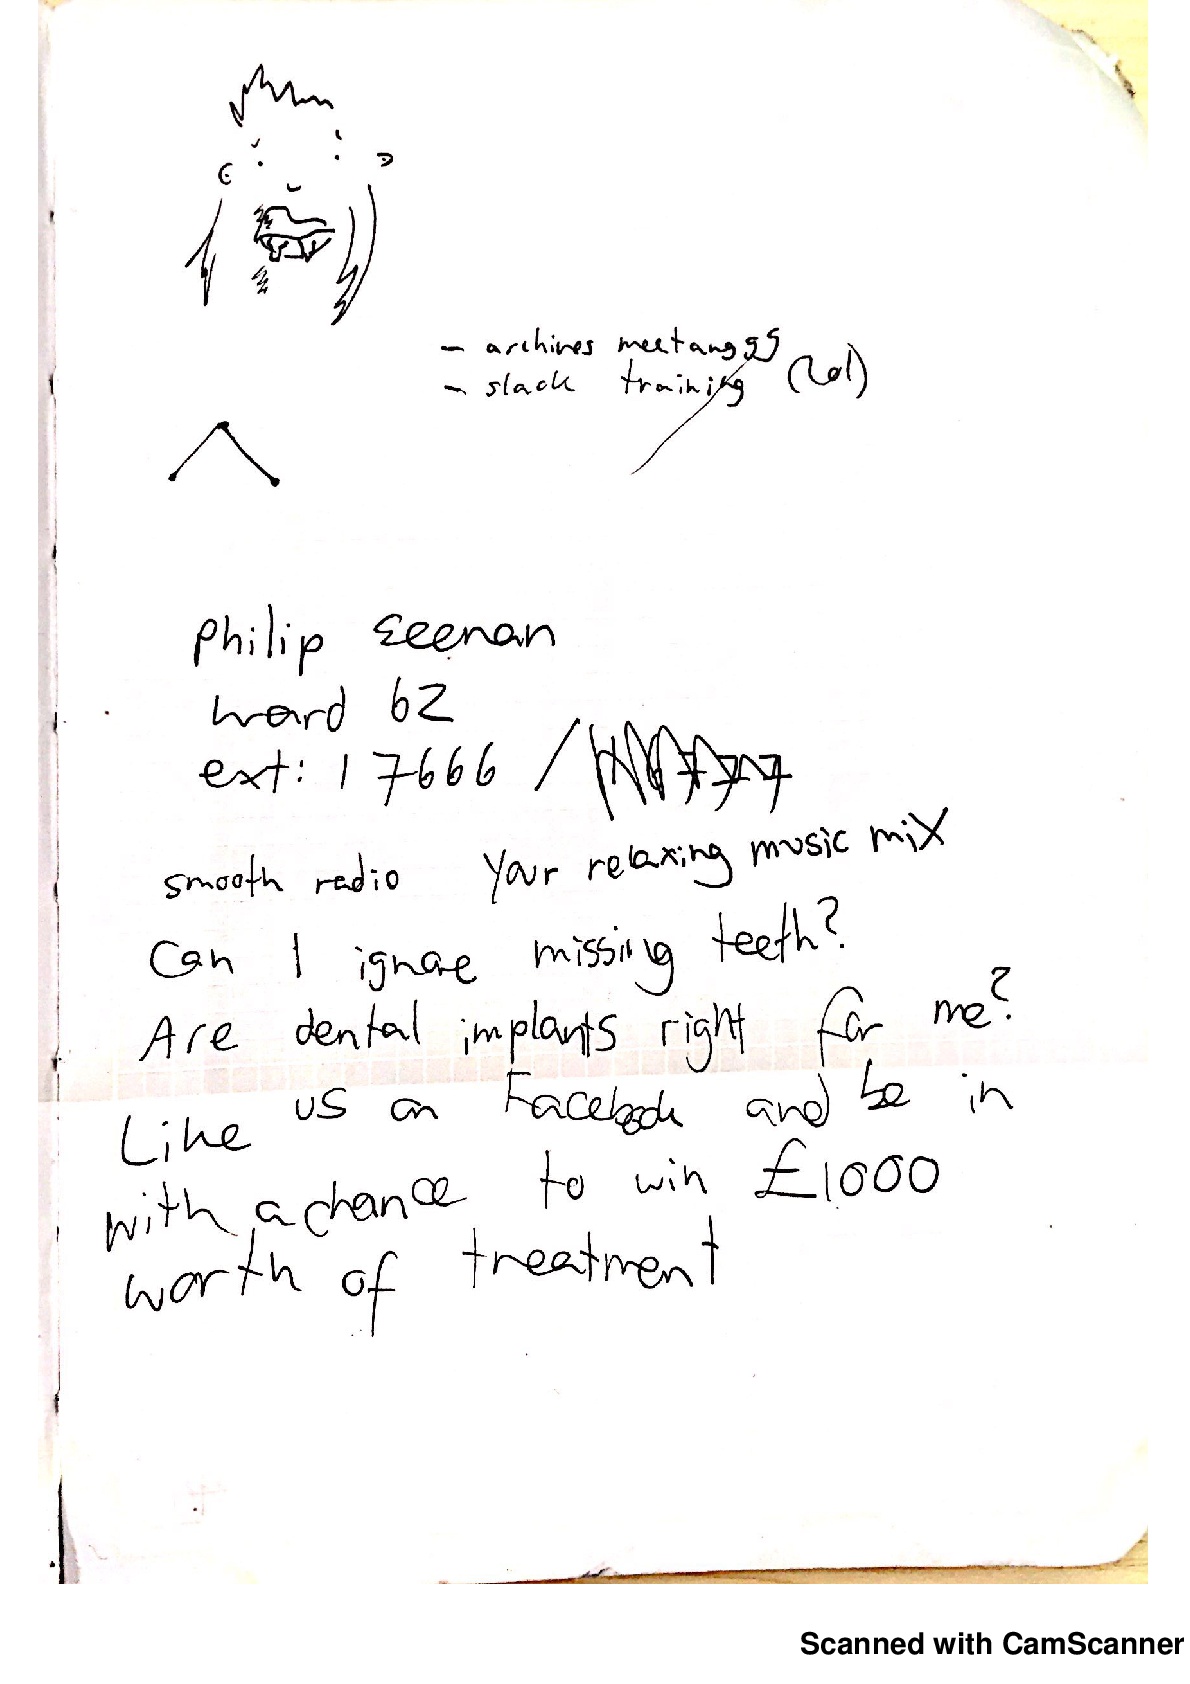 - archives meetanggg
- slack training (lol)
philip Eeenan
ward 62
ext: 17666 /
smooth radio your relaxing music mix
Can I ignore missing teeth?
Are dental implants right for me?
Like us on Facebook and be in
with a chance to win £1000
worth of treatment
Scanned with CamScanner